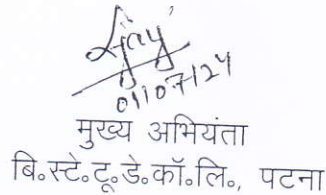 01/07/24
मुख्य अभियंता
बि॰स्टे॰टू॰डे॰कॉ॰लि॰, पटना